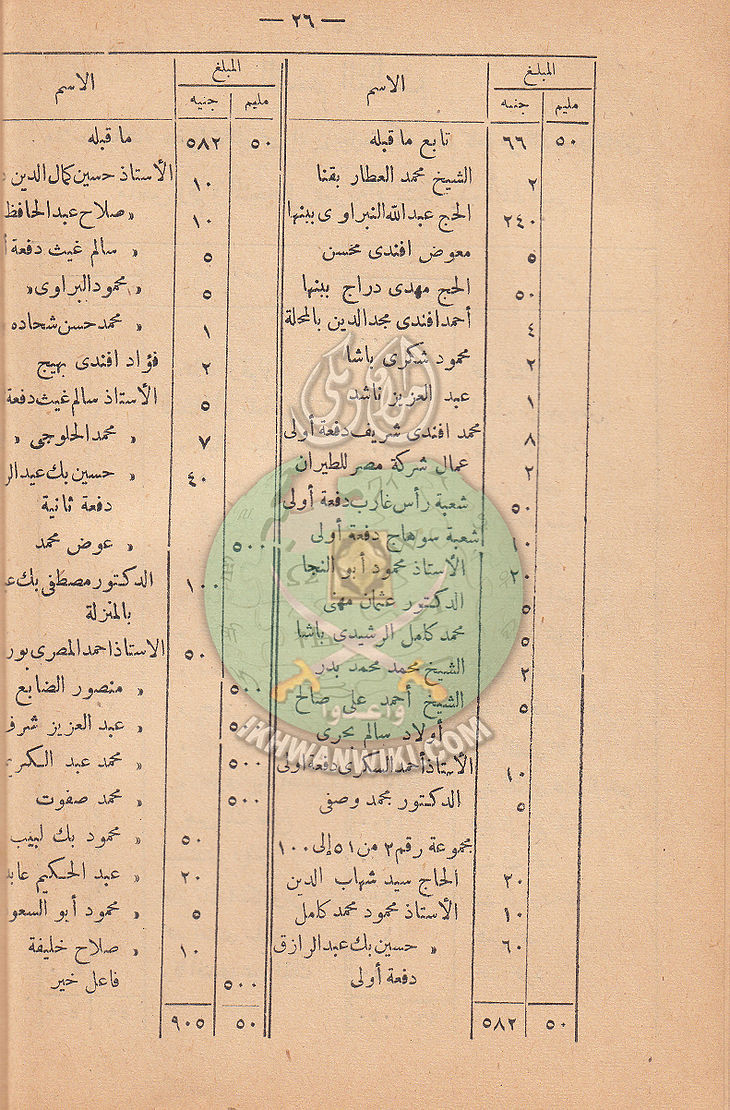 — ٢٦ —
المبلغ الاسم
مليم جنيه
٥٠ ٦٦ تابع ما قبله
٢ الشيخ محمد العطار بقنا
٢٤٠ الحج عبدالله النبراوى ببنها
٥ معوض افندى محسن
٥٠ الحج مهدى دراج ببنها
٤ أحمد افندى مجد الدين بالمحلة
٢ محمود شكرى باشا
١ عبد العزيز ناشد
٨ محمد افندى شريف دفعة أولى
٢ عمال شركة مصر للطيران
٥٠ شعبة رأس غارب دفعة أولى
١٠ شعبة سوهاج دفعة أولى
٢٠ الأستاذ محمود أبو النجا
٥ الدكتور عثمان مهنى
٥ محمد كامل الرشيدى باشا
٢ الشيخ محمد محمد بدر
٥ الشيخ أحمد على صالح
أولاد سالم بحرى
١٠ الأستاذ أحمد السكرى دفعة أولى
٥ الدكتور محمد وصفى
مجموعة رقم ٢ من ٥١ إلى ١٠٠
٢٠ الحاج سيد شهاب الدين
١٠ الأستاذ محمود محمد كامل
٦٠ « حسين بك عبد الرازق
دفعة أولى
٥٠ ٥٨٢
المبلغ الاسم
مليم جنيه
٥٠ ٥٨٢ ما قبله
١٠ الأستاذ حسين كمال الدين
١٠ « صلاح عبد الحافظ
٥ « سالم غيث دفعة
٥ « محمود البراوى «
١ « محمد حسن شحاده
٢ فؤاد افندى بهيج
٥ الأستاذ سالم غيث دفعة
٧ « محمد الحلوجى «
٤٠ « حسين بك عبد الر
دفعة ثانية
٥٠٠ « عوض محمد
١٠٠ الدكتور مصطفى بك ع
بالمنزلة
٥٠ الاستاذ احمد المصرى بور
٥٠٠ « منصور الضايع
« عبد العزيز شرف
٥٠٠ « محمد عبد الكري
٥٠٠ « محمد صفوت
٥٠ « محمود بك لبيب
٢٠ « عبد الحكيم عابد
٥ « محمود أبو السعو
١٠ « صلاح خليفة
٥٠٠ فاعل خير
٥٠ ٩٠٥
وأعدوا
IKHWANWIKI.COM